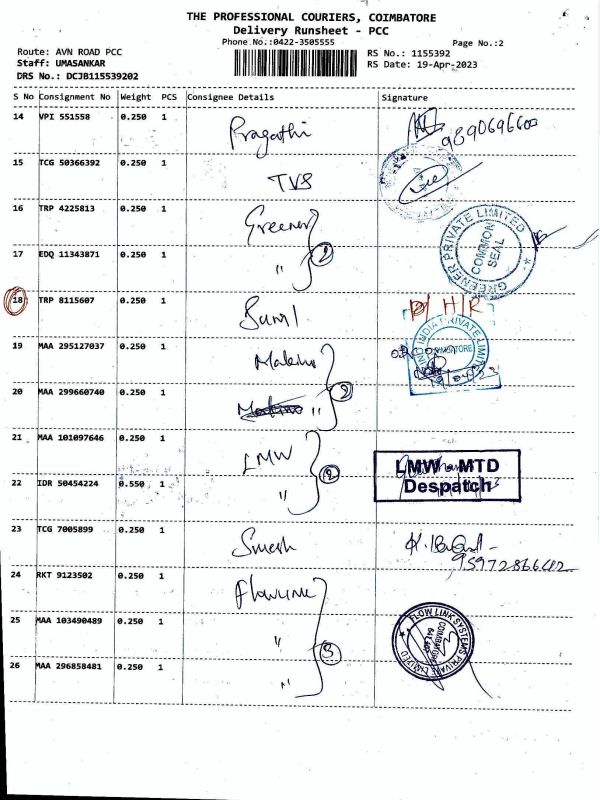 THE PROFESSIONAL COURIERS, COIMBATORE
Delivery Runsheet - PCC
Phone No.:0422-3505555
Page No.:2
Route: AVN ROAD PCC
RS No.: 1155392
Staff: UMASANKAR
RS Date: 19-Apr-2023
DRS No.: DCJB115539202
S No Consignment No Weight PCS Consignee Details Signature
14 VPI 551558 0.250 1 Pragathi 9890696600
15 TCG 50366392 0.250 1 TVS
16 TRP 4225813 0.250 1 Greener
GREENER PRIVATE LIMITED
COMMON SEAL
17 EDQ 11343871 0.250 1 " 2
18 TRP 8115607 0.250 1 D/ H/R
19 MAA 295127037 0.250 1 Makino
INDIA PRIVATE LIMITED
COIMBATORE
20 MAA 299660740 0.250 1 Makino " 2
21 MAA 101097646 0.250 1 LMW
LMW MTD
Despatch
22 IDR 50454224 0.550 1 " 2
23 TCG 7005899 0.250 1
24 RKT 9123502 0.250 1 Flowlink
25 MAA 103490489 0.250 1 "
FLOW LINK SYSTEMS PRIVATE LIMITED
COIMBATORE
3
26 MAA 296858481 0.250 1 "